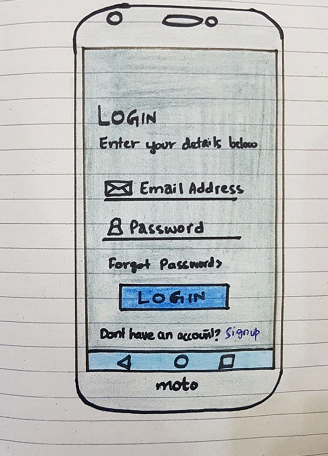 LOGIN
Enter your details below
Email Address
Password
Forgot Password>
LOGIN
Dont have an account? Signup
moto